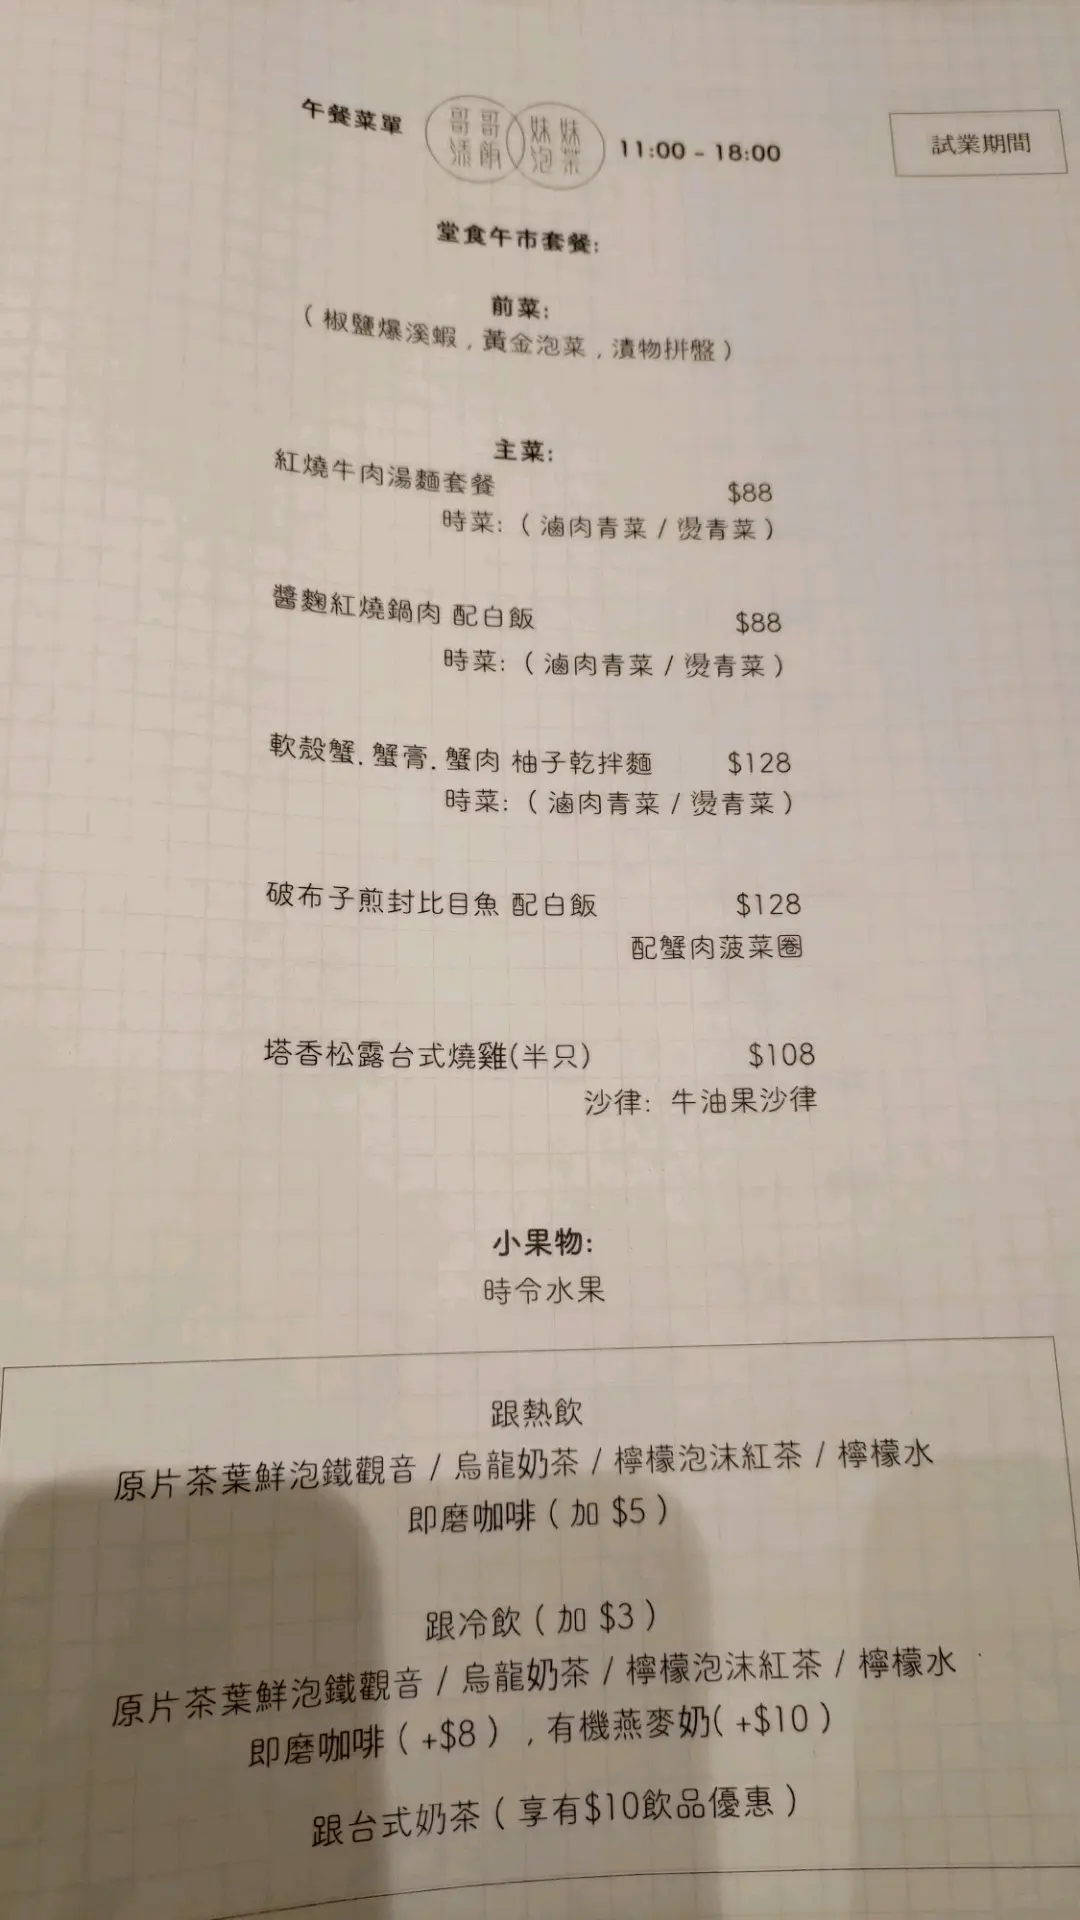 午餐菜單
哥哥添飯
妹妹泡茶
11:00 - 18:00
試業期間
堂食午市套餐:
前菜:
( 椒鹽爆溪蝦 , 黃金泡菜 , 漬物拼盤 )
主菜:
紅燒牛肉湯麵套餐 $88
時菜: ( 滷肉青菜 / 燙青菜 )
醬麴紅燒鍋肉 配白飯 $88
時菜: ( 滷肉青菜 / 燙青菜 )
軟殼蟹. 蟹膏. 蟹肉 柚子乾拌麵 $128
時菜: ( 滷肉青菜 / 燙青菜 )
破布子煎封比目魚 配白飯 $128
配蟹肉菠菜圈
塔香松露台式燒雞(半只) $108
沙律: 牛油果沙律
小果物:
時令水果
跟熱飲
原片茶葉鮮泡鐵觀音 / 烏龍奶茶 / 檸檬泡沫紅茶 / 檸檬水
即磨咖啡 ( 加 $5 )
跟冷飲 ( 加 $3 )
原片茶葉鮮泡鐵觀音 / 烏龍奶茶 / 檸檬泡沫紅茶 / 檸檬水
即磨咖啡 ( +$8 ) , 有機燕麥奶( +$10 )
跟台式奶茶 ( 享有$10飲品優惠 )